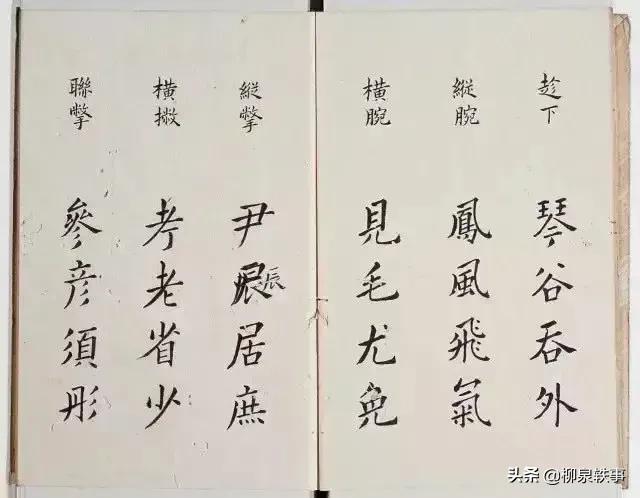 趁下
琴谷吞外
縱腕
鳳風飛氣
橫腕
見毛尤免
縱撆
尹辰居庶
橫撇
考老省少
聯撆
參彦須彤
头条 @柳泉轶事